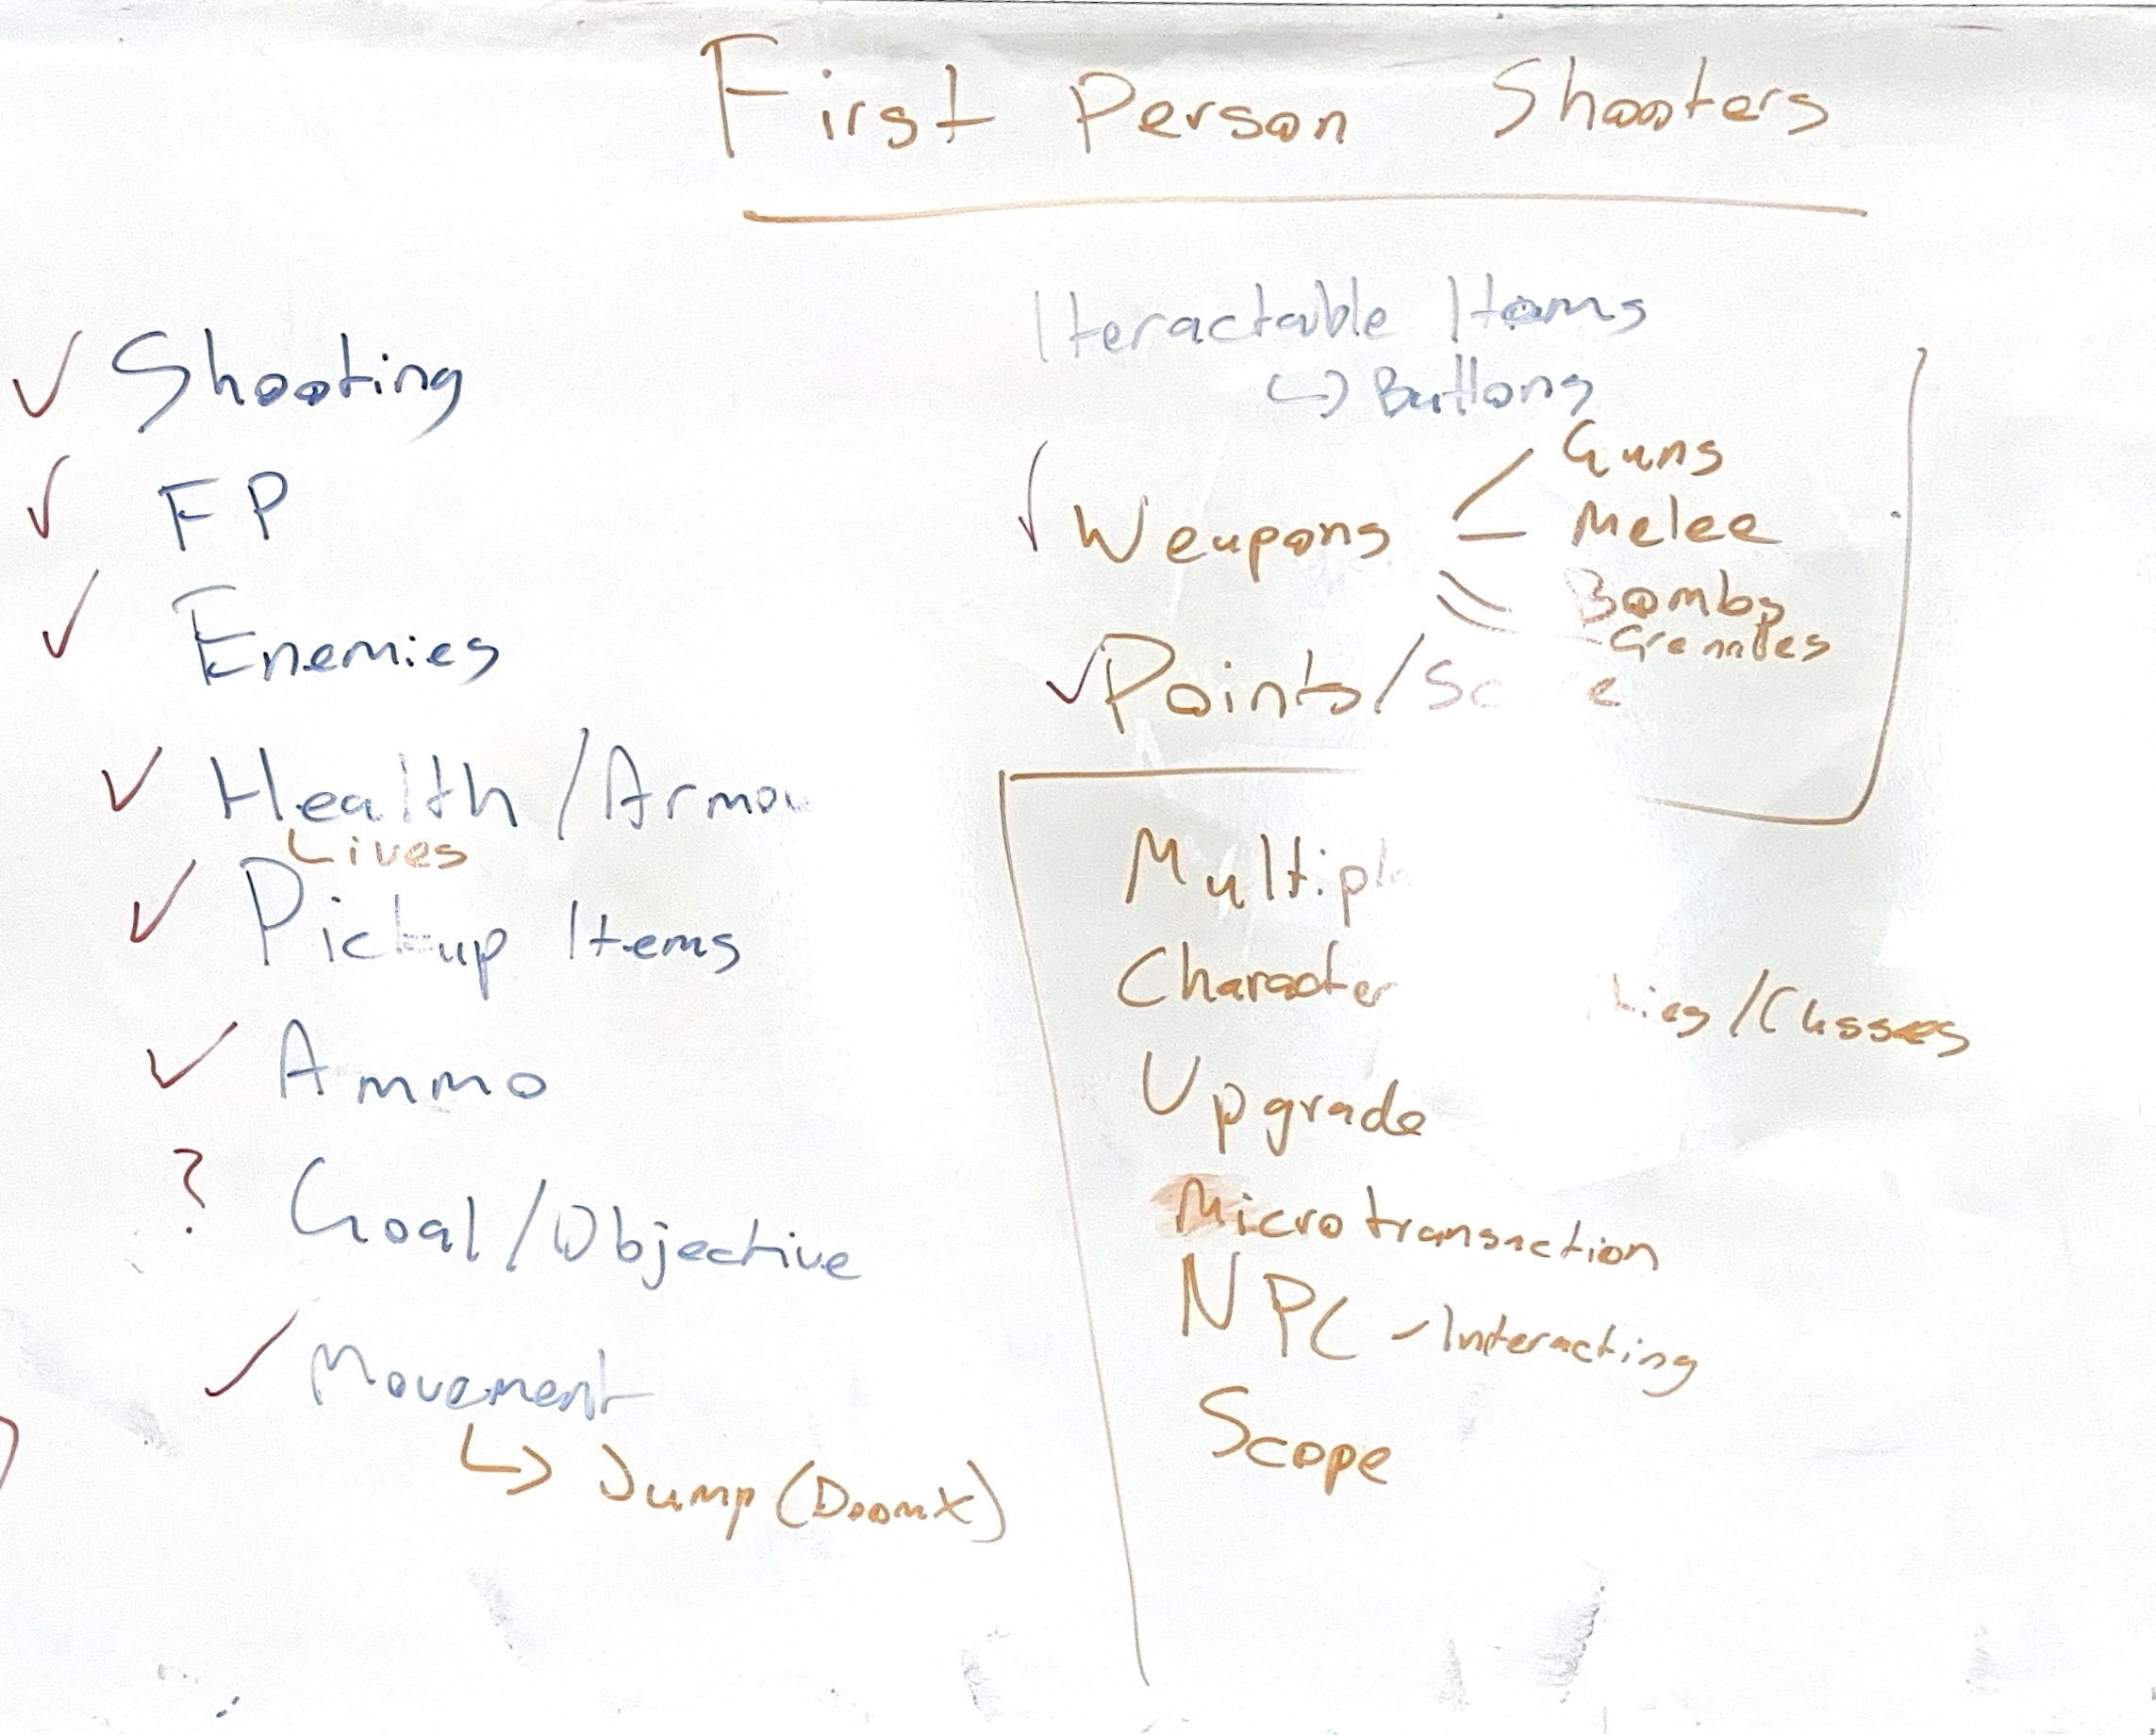 First Person Shooters
✓ Shooting
✓ FP
✓ Enemies
✓ Health/Armou
Lives
✓ Pickup Items
✓ Ammo
? Goal/Objective
✓ Movement
↳ Jump (Doom X)
Iteractable Items
↳ Buttons
✓ Weapons
Guns
Melee
Bombs
✓ Points/
Character
/Classes
Upgrade
Microtransaction
NPC - Interacting
Scope